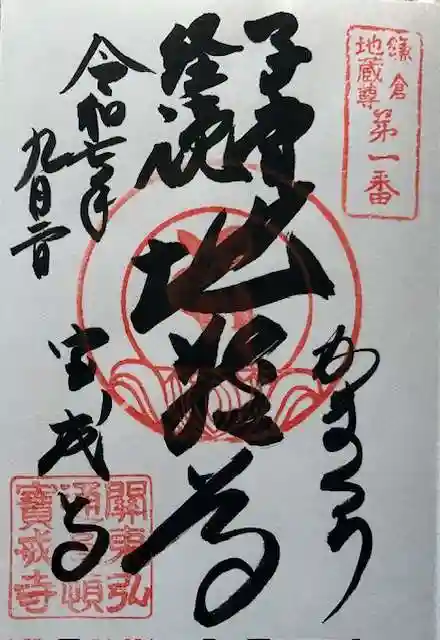 鎌倉
地蔵尊
第一番
かまくら
子育
経読
地蔵尊
令和七年
九月二日
宝戒寺
關東弘
通圓頓
寶戒寺